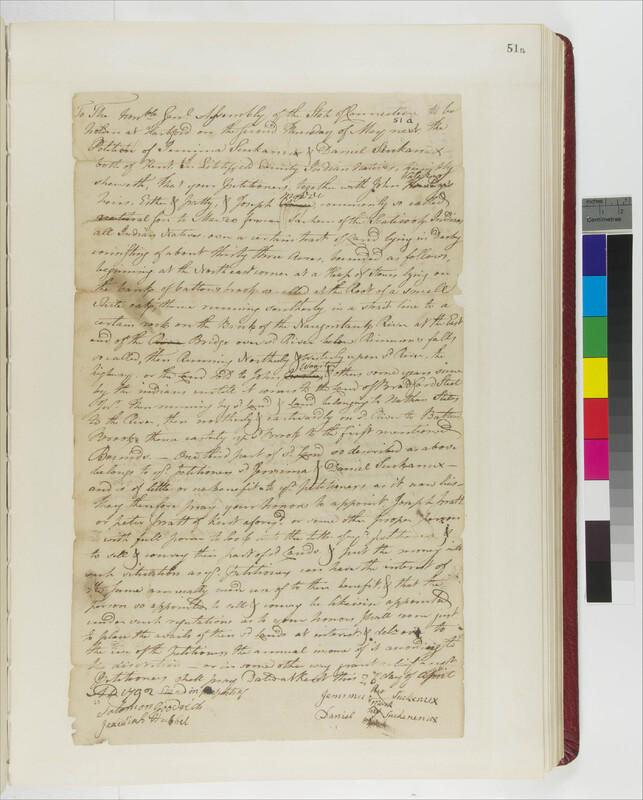 51a
To The Honble Genl Assembly of the State of Connecticut to be
51a
holden at Hartford on the second Thursday of May next, the
Petition of Jemima Suckanux & Daniel Suckanux
both of Kent, in Litchfield County Indian Natives, humbly
sheweth, that your Petitioners, together with John
heirs. Esther & patty, & Joseph commonly so called
son to Sachem of the Indians
all Indian Natives, own a certain tract of Land lying in Derby
consisting of about thirty three Acres, bounded as follows,
beginning at the North east corner at a Heap of Stones lying on
the bank of brook so called at the Root of a small
White oak, thence running southerly in a strait line to a
certain rock on the Brink of the River at the East
end of the Bridge over sd River below Rimmons falls
so called, then Running Northerly & Westerly upon sd River, the
highway, or the Land sold to John & others some years since
by the indians until it comes to the Land of Bradford Steel
then running by sd Land & Land belonging to Nathan Stiles
to the River, then northerly & eastwardly on sd River to the
Brook thence easterly up sd brook to the first mentioned
Bounds. — One third part of sd Land so described as above
belongs to yr petitioners sd Jemima & Daniel Suckanux —
and is of little or no benefit to yr petitioners as it now lies —
they therefore pray your honors to appoint Joseph Pratt
or peter Pratt of Kent aforesd. or some other proper person
with full power to look into the title of yr petitioners &
to sell & convey their part of sd Lands & put the money into
such situation as yr. Petitioners can have the interest of
the same annually made use of to their benefit & that the
person so appointed to sell & convey be likewise appointed
under such regulations as to your honors shall seem just
to place the avails of their sd Lands at interest & deliver to
the use of the petitioners the annual income of it according to
his discretion — or in some other way grant relief & yr
Petitioners shall pray Dated at Kent this day of April
AD 1792 Signed in presence of
Jemima her mark Suckanux
Solomon
Daniel his mark Suckanux
Jeadiah Hubbel